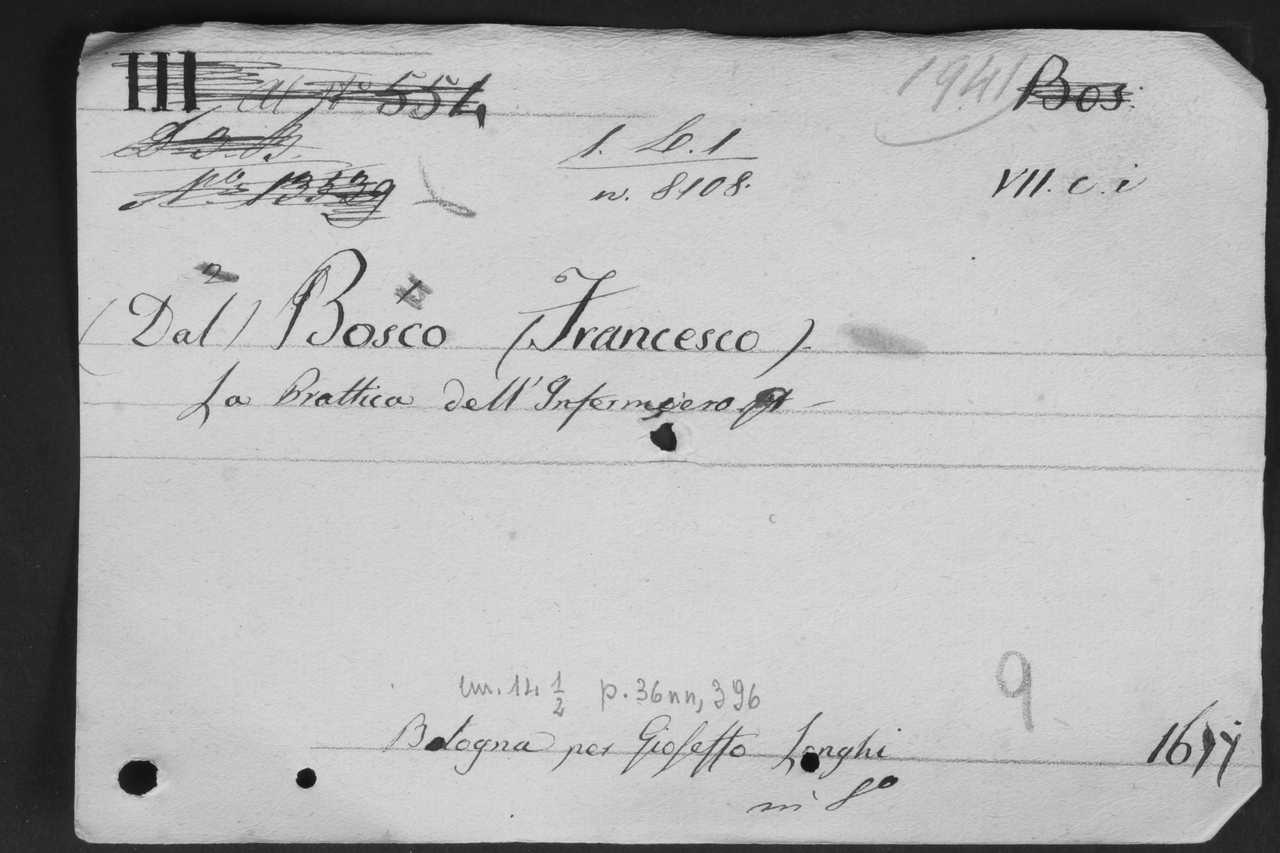 III al N° 554 1941 Bos:
N° 13539
1. L. 1
n. 8108. VII. c. i
2 1
(Dal) Bosco (Francesco).
La Prattica dell'Infermiero
cm. 14 1/2 p. 36nn, 396 9
Bologna per Gioseffo Longhi 1677
in 8°